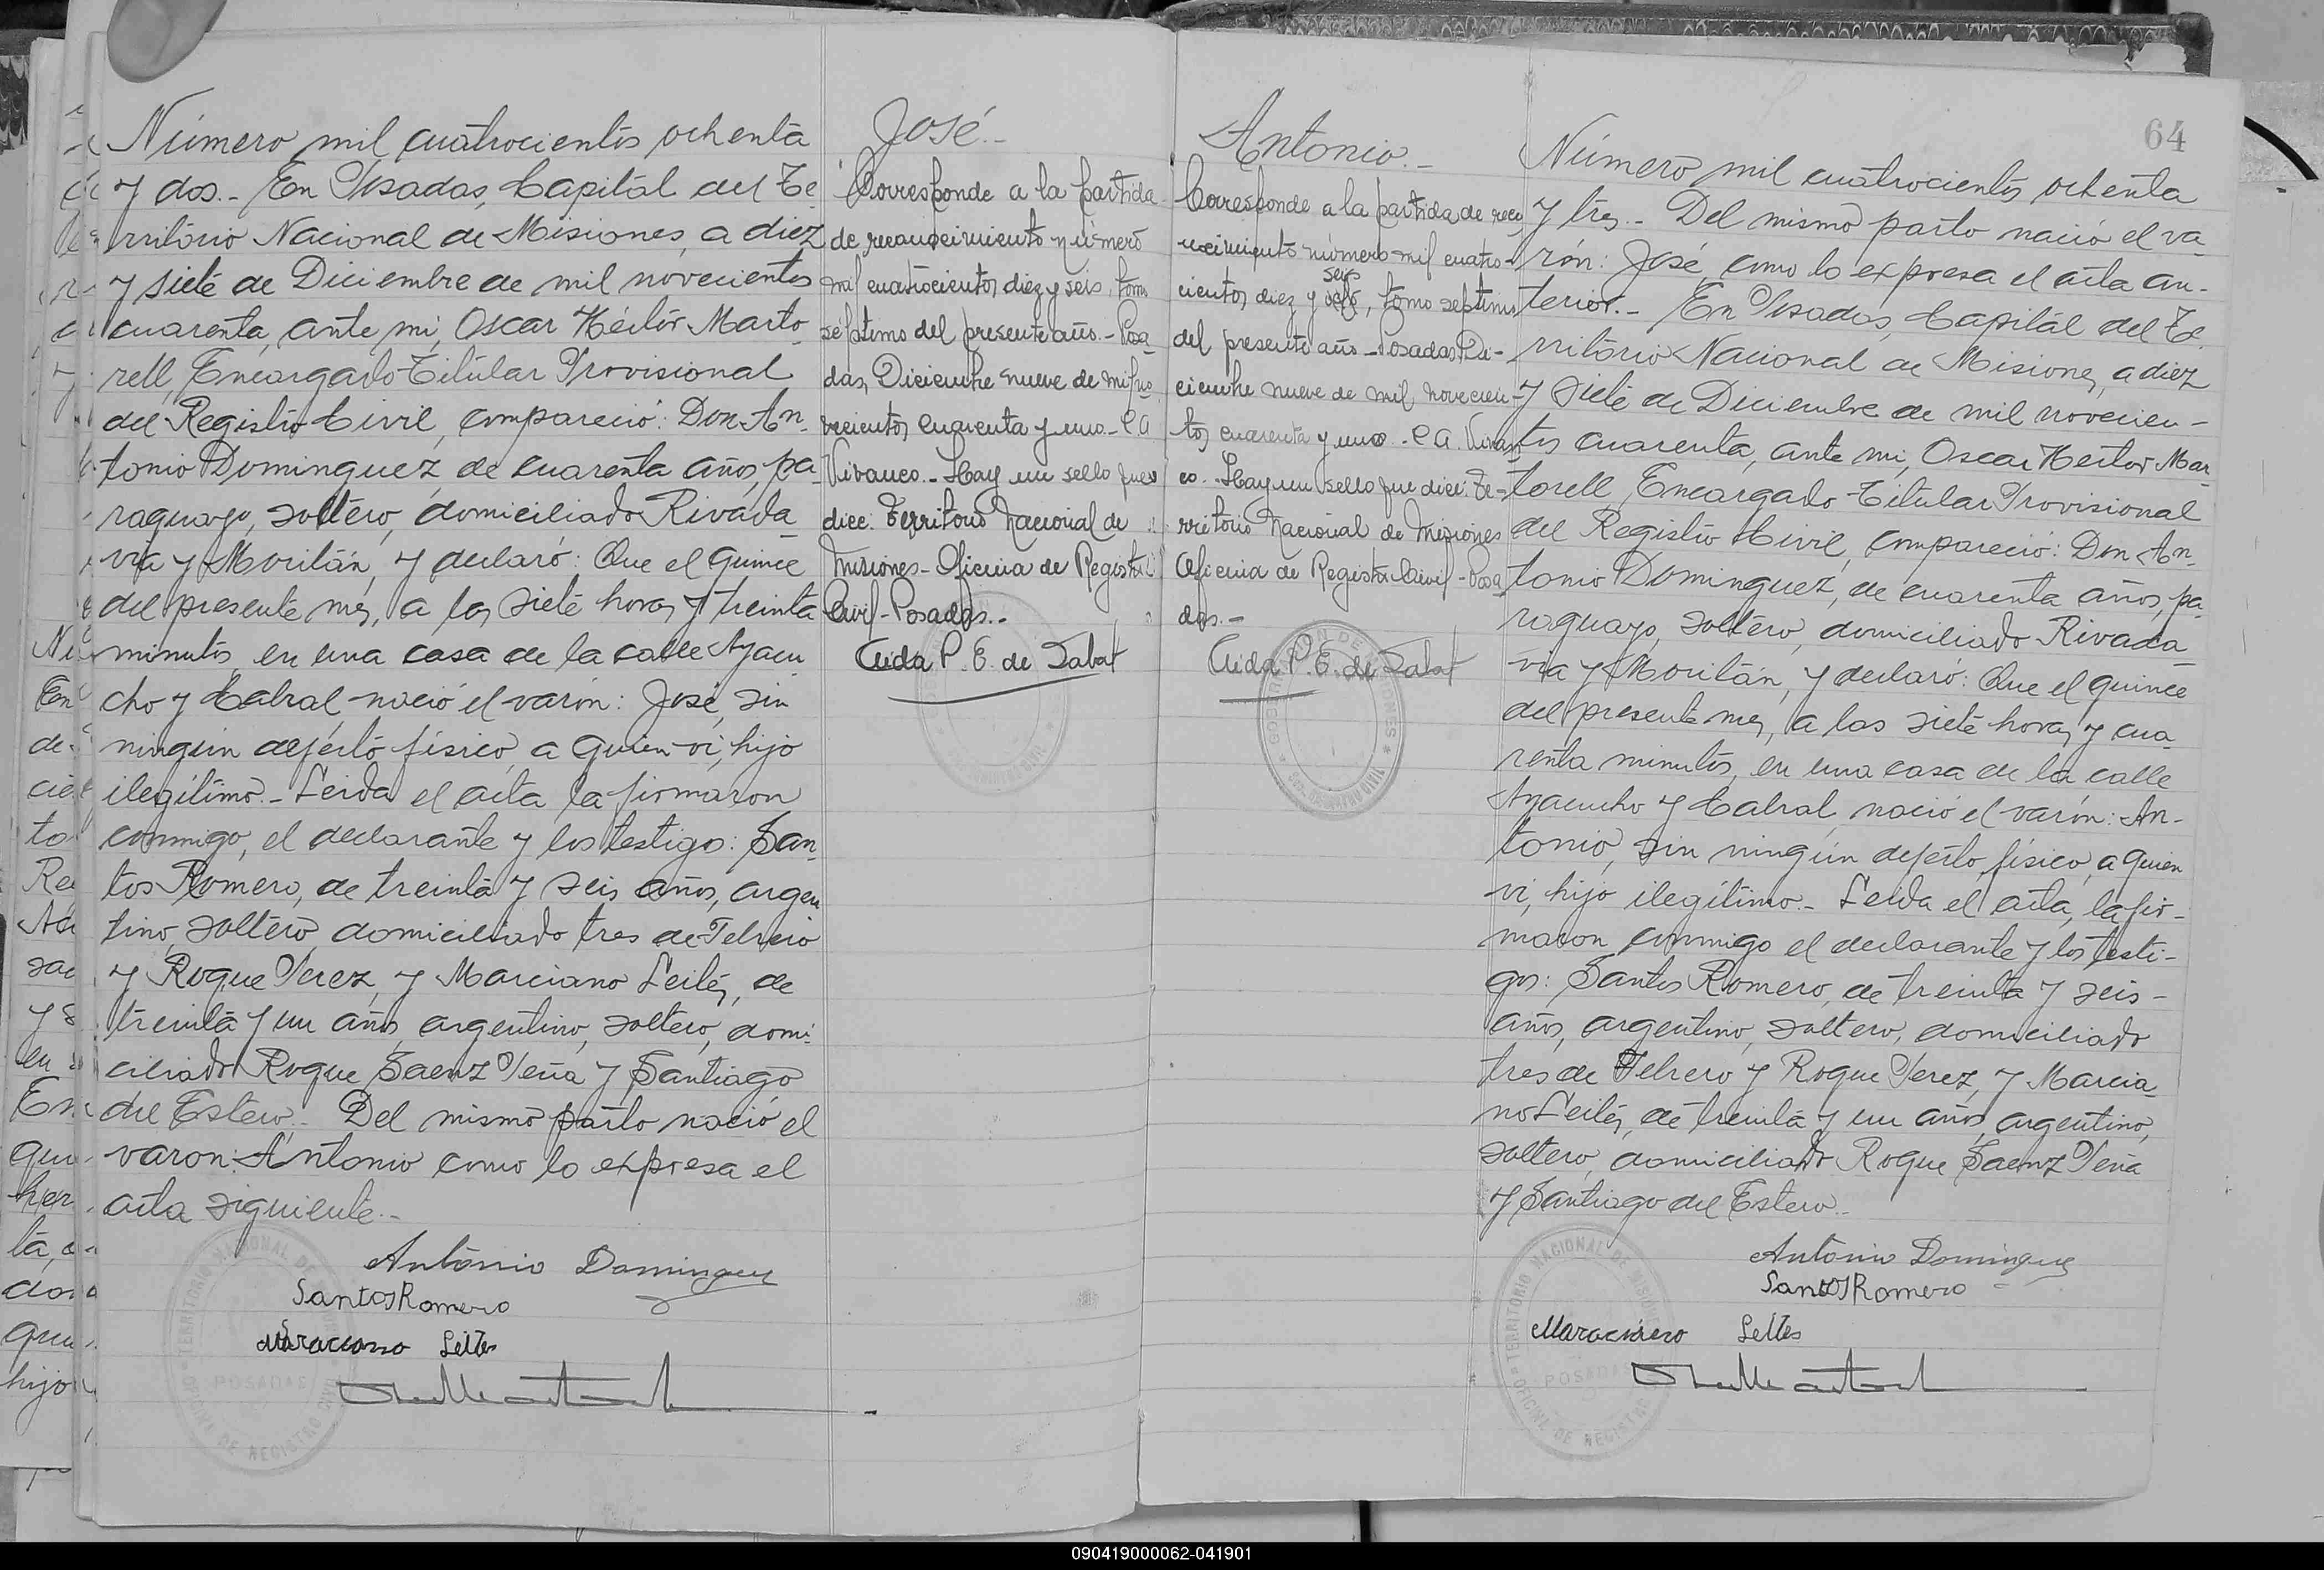 Número mil cuatrocientos ochenta
y dos.- En Posadas, Capital del Te-
rritorio Nacional de Misiones, a diez
y siete de Diciembre de mil novecientos
cuarenta, ante mi, Oscar Héctor Marto-
rell, Encargado Titular Provisional
del Registro Civil, compareció: Don An-
tonio Dominguez, de cuarenta años, pa-
raguayo, soltero, domiciliado Rivada
via y Moritán, y declaró: Que el quince
del presente mes, a las siete horas y treinta
minutos, en una casa de la calle Ayacu
cho y Cabral nació el varón: José, sin
ningún defecto físico, a quien vi, hijo
ilegítimo.- Leida el acta la firmaron
conmigo, el declarante y los testigo: San-
tos Romero, de treinta y seis años, argen
tino, soltero, domiciliado tres de Febrero
y Roque Perez, y Marciano Leites, de
treinta y un años, argentino, soltero, domi-
ciliado Roque Saenz Peña y Santiago
del Estero.- Del mismo parto nació el
varon: Antonio como lo expresa el
acta siguiente.-
Antonio Dominguez
Santos Romero
Maraciano Leites
TERRITORIO NACIONAL DE MISIONES
POSADAS
OFICINA DE REGISTRO CIVIL
José.-
Corresponde a la partida
de reconocimiento número
mil cuatrocientos diez y seis, tomo
séptimo del presente año.- Posa-
das, Diciembre nueve de mil no
vecientos cuarenta y uno.- C A
Vivanco.- Hay un sello que
dice: Territorio Nacional de
Misiones- Oficina de Registro
Civil- Posadas.-
Aida P. E. de Labat
Antonio.-
Corresponde a la partida de reco
nocimiento número mil cuatro-
seis
cientos diez y ocho, tomo septimo
del presente año - Posadas, Di-
ciembre nueve de mil novecien-
tos cuarenta y uno.- C A. Vivan
co.- Hay un sello que dice: Te-
rritorio Nacional de Misiones
Oficina de Registro Civil - Posa
das.-
Aida P. E. de Labat
64
Número mil cuatrocientos ochenta
y tres.- Del mismo parto nació el va-
rón: José, como lo expresa el acta an-
terior.- En Posadas, Capital del Te-
rritorio Nacional de Misiones, a diez
y siete de Diciembre de mil novecien-
tos cuarenta, ante mi, Oscar Hector Mar
torell, Encargado Titular Provisional
del Registro Civil, compareció: Don An-
tonio Dominguez, de cuarenta años, pa-
raguayo, soltero, domiciliado Rivada
via y Moritán, y declaró: Que el quince
del presente mes, a las siete horas y cua-
renta minutos, en una casa de la calle
Ayacucho y Cabral, nació el varón: An-
tonio, sin ningún defecto físico, a quien
vi, hijo ilegítimo.- Leida el acta, la fir-
maron conmigo el declarante y los testi-
gos: Santos Romero, de treinta y seis-
años, argentino, soltero, domiciliado
tres de Febrero y Roque Perez, y Marcia-
no Leites, de treinta y un años, argentino,
soltero, domiciliado Roque Saenz Peña
y Santiago del Estero.-
Antonio Dominguez
Santos Romero
Maraciano Leites
TERRITORIO NACIONAL DE MISIONES
POSADAS
OFICINA DE REGISTRO
090419000062-041901